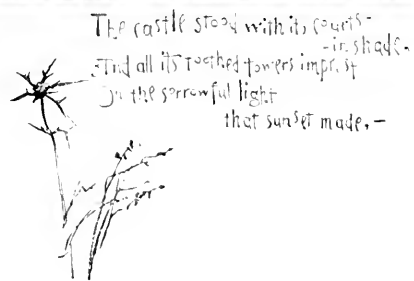 The castle stood with its courts-
-in shade.
And all its toothed towers imprest
On the sorrowful light
that sunset made,-